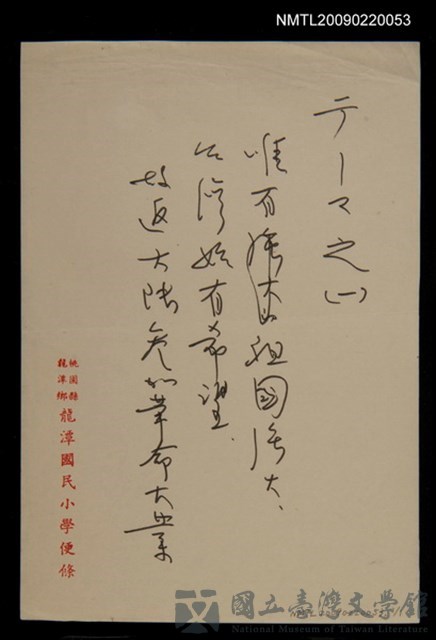 NMTL20090220053
テーマ之(一)
唯有祖國強大、
台灣始有希望.
故返大陸參加革命大業
桃園縣
龍潭鄉
龍潭國民小學便條
國立臺灣文學館
National Museum of Taiwan Literature